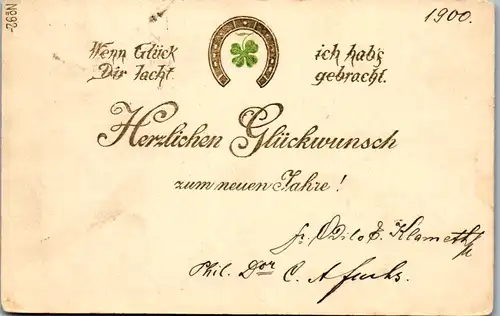 No 92-
1900.
Wenn Glück
Dir lacht
ich hab's
gebracht.
Herzlichen Glückwunsch
zum neuen Jahre!
fr. Odilo Klameth
Phil. Dor C. A fuchs.